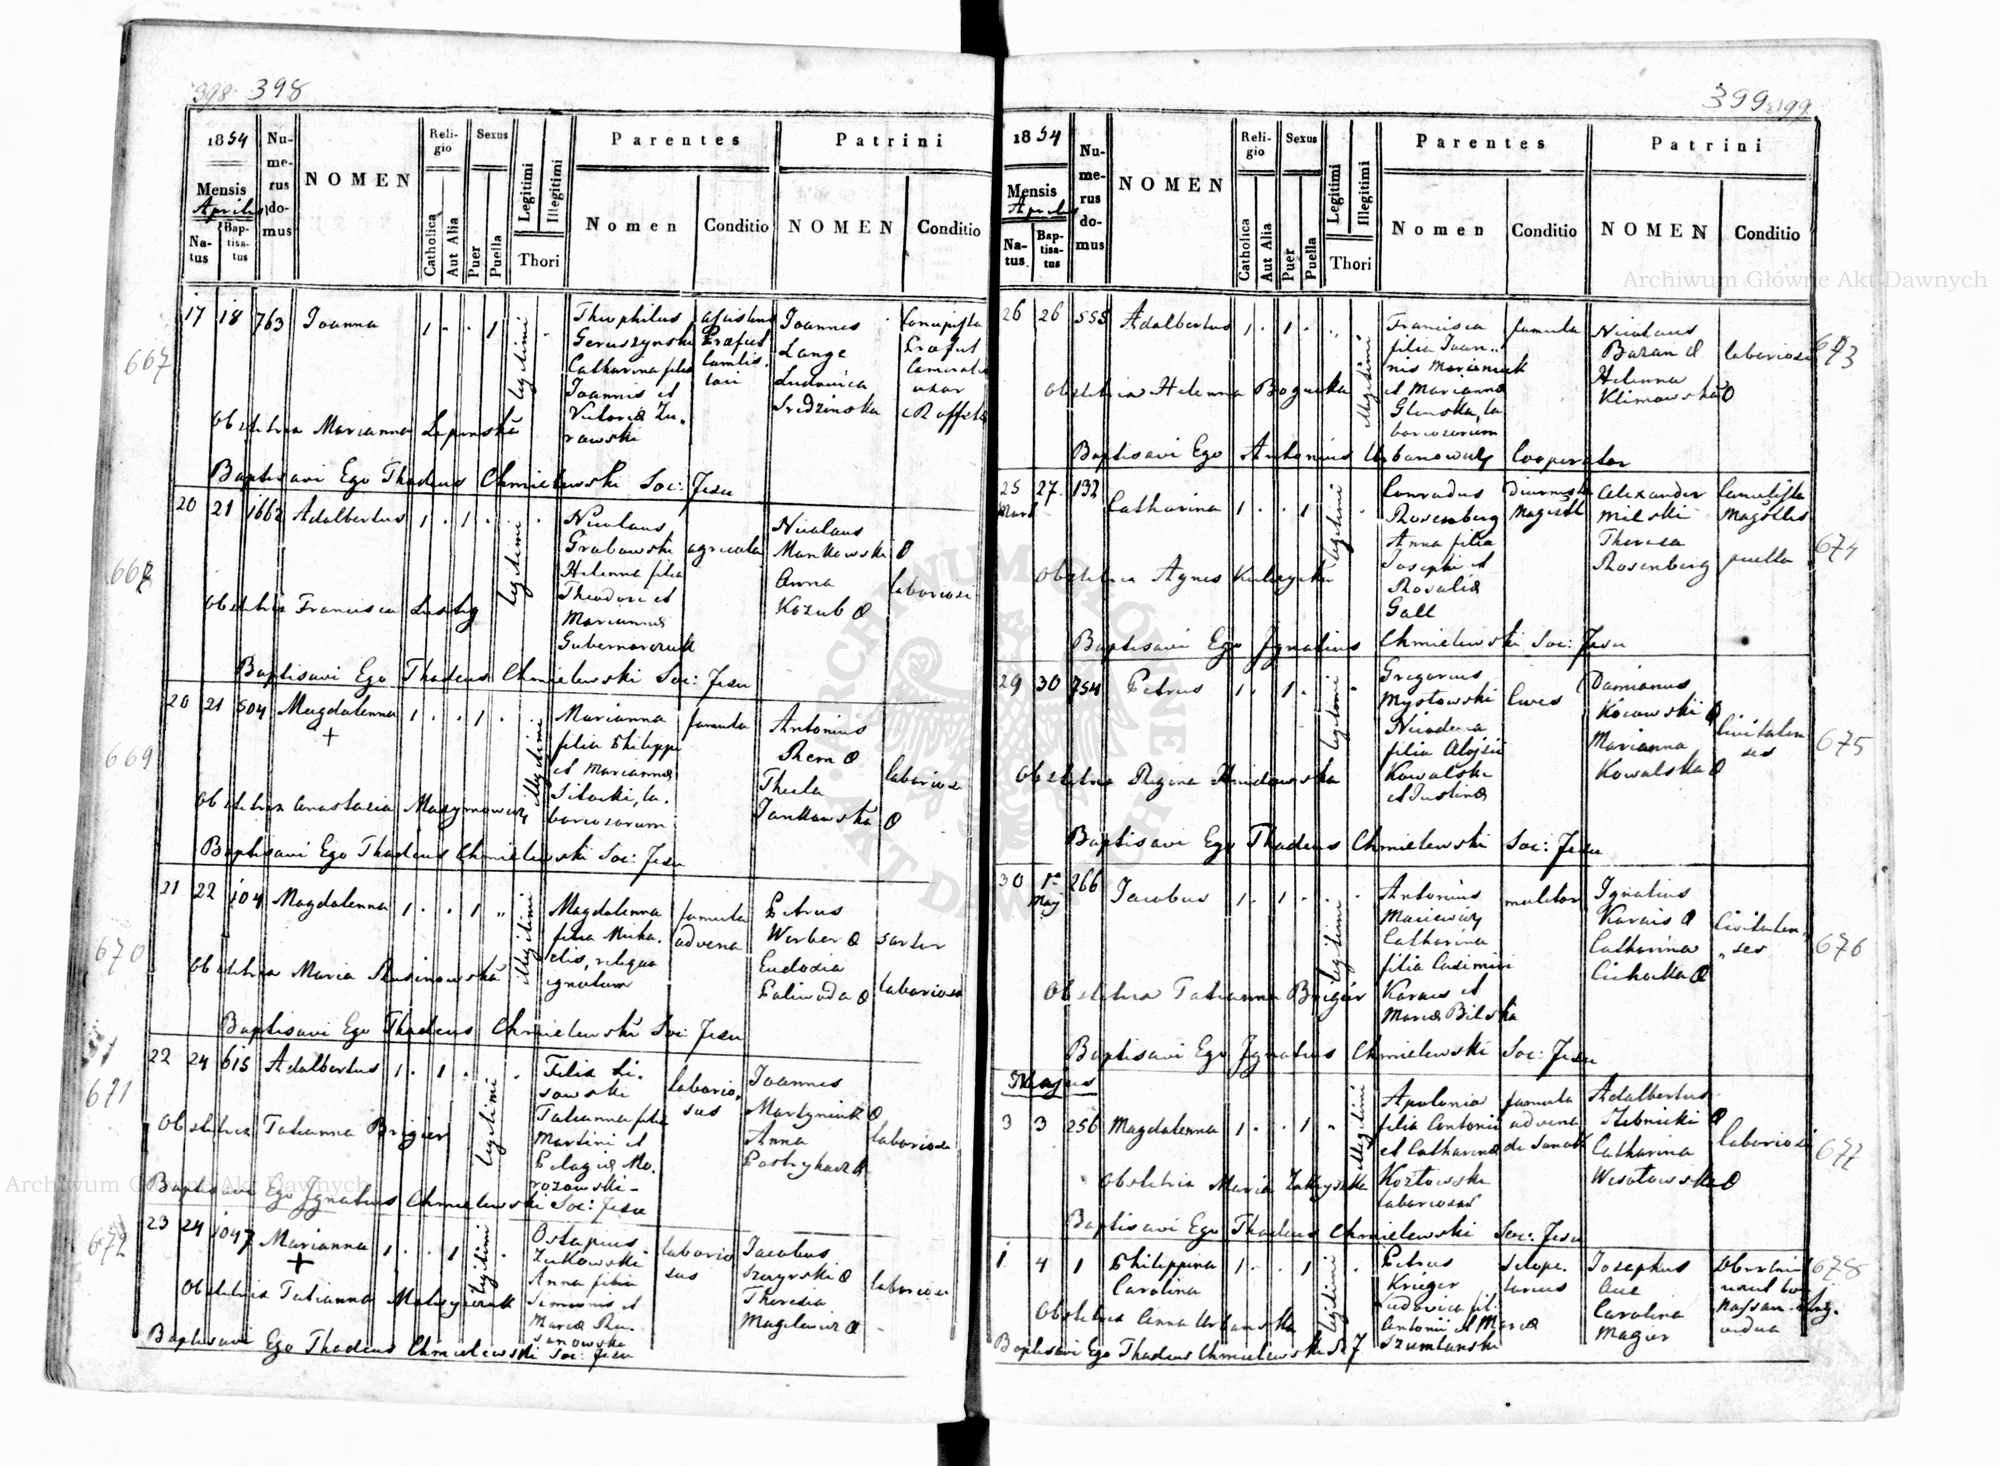 398. 398
1854
Mensis
Aprilis
Na-
tus
Bap-
tisa-
tus
Nu-
me-
rus
do-
mus
NOMEN
Reli-
gio
Catholica
Aut Alia
Sexus
Puer
Puella
Legitimi
Illegitimi
Thori
Parentes
Nomen
Conditio
Patrini
NOMEN
Conditio
667
17 18 763 Joanna 1 . . 1
legitimi
Theophilus
Catharina filia
Joannis et
Victoriæ Zu-
rowski
Joannes
Lange
Ludovica
Sredzinska
Obstetrix Marianna
Baptisavi Ego Thadeus Chmielewski Soc: Jesu
668
20 21 1662 Adalbertus 1 . 1 .
legitimi
Nicolaus
Grabowski
Helenna filia
Theodori et
Mariannæ
agricola
Nicolaus
Mankowski
Anna
Kozub
laboriosi
Obstetrix Francisca
Baptisavi Ego Thadeus Chmielewski Soc: Jesu
669
20 21 504 Magdalenna 1 . . 1
+
illegitimi
Marianna
filia Philippi
et Mariannæ
la-
boriosorum
famula
Antonius
Thecla
Jankowska
laboriosi
Obstetrix Anastasia
Baptisavi Ego Thadeus Chmielewski Soc: Jesu
670
21 22 104 Magdalenna 1 . . 1
illegitimi
Magdalenna
filia Micha-
elis, reliqua
ignotum
famula
advena
Petrus
Werber
Eudoxia
Paliwoda
sartor
laboriosa
Obstetrix Maria Rusinowska
Baptisavi Ego Thadeus Chmielewski Soc: Jesu
671
22 24 615 Adalbertus 1 . 1 .
legitimi
Felix Li-
sowski
Tatianna filia
Martini et
Pelagiæ Mo-
rozowski
laborio-
sus
Joannes
Martyniuk
Anna
laboriosi
Obstetrix Tatianna Brigier
Baptisavi Ego Ignatius Chmielewski Soc: Jesu
672
23 24 1047 Marianna 1 . . 1
+
legitimi
Ostapius
Zukowski
Anna filia
Simeonis et
Mariæ Ru-
sanowska
laborio
sus
Jacobus
Theresia
laboriosi
Obstetrix Tatianna
Baptisavi Ego Thadeus Chmielewski Soc: Jesu
399 399
1854
Mensis
Aprilis
Na-
tus
Bap-
tisa-
tus
Nu-
me-
rus
do-
mus
NOMEN
Reli-
gio
Catholica
Aut Alia
Sexus
Puer
Puella
Legitimi
Illegitimi
Thori
Parentes
Nomen
Conditio
Patrini
NOMEN
Conditio
673
26 26 555 Adalbertus 1 . 1 .
illegitimi
Francisca
filia Joan-
nis Marianiuk
et Mariannæ
Glinska, la
boriosorum
famula
Nicolaus
Baran
Helenna
Klimowska
laboriosi
Obstetrix Helenna Bogucka
Baptisavi Ego Antonius Urbanowicz Cooperator
674
25
Mart
27. 132 Catharina 1 . . 1
legitimi
Conradus
Rosenberg
Anna filia
Josephi et
Rosaliæ
Gall
Alexander
Milski
Theresa
Rosenberg
puella
Obstetrix Agnes
Baptisavi Ego Ignatius Chmielewski Soc: Jesu
675
29 30 754 Petrus 1 . 1 .
legitimi
Gregorius
Mystowski
filia Alojsii
Kowalski
et Justinæ
Cives
Damianus
Marianna
Kowalska
Civitaten
ses
Obstetrix Regina
Baptisavi Ego Thadeus Chmielewski Soc: Jesu
676
30 1a
Maj
266 Jacobus 1 . 1 . .
legitimi
Antonius
Maciewicz
Catharina
filia Casimiri
Karais et
Mariæ Bilska
molitor
Ignatius
Karais
Catharina
Cichocka
Civitaten-
ses
Obstetrix Tatianna Brigier
Baptisavi Ego Ignatius Chmielewski Soc: Jesu
Majus
677
3 3 256 Magdalenna 1 . . 1
illegitimi
Apolonia
filia Antonii
et Catharinæ
Kozłowski
famula
advena
de Sanok
Adalbertus
Catharina
Wesołowska
laboriosi
Obstetrix Maria
Baptisavi Ego Thadeus Chmielewski Soc: Jesu
678
1 4 1 Philippina
Carolina
1 . . 1
legitimi
Petrus
Krieger
Ludovica fil.
Antonii et Mariæ
Szumlanski
Josephus
Aue
Carolina
Mager
vidua
Obstetrix Anna Urbanska
Baptisavi Ego Thadeus Chmielewski S. J
Archiwum Główne Akt Dawnych
Archiwum Główne Akt Dawnych
ARCHIWUM GŁÓWNE AKT DAWNYCH